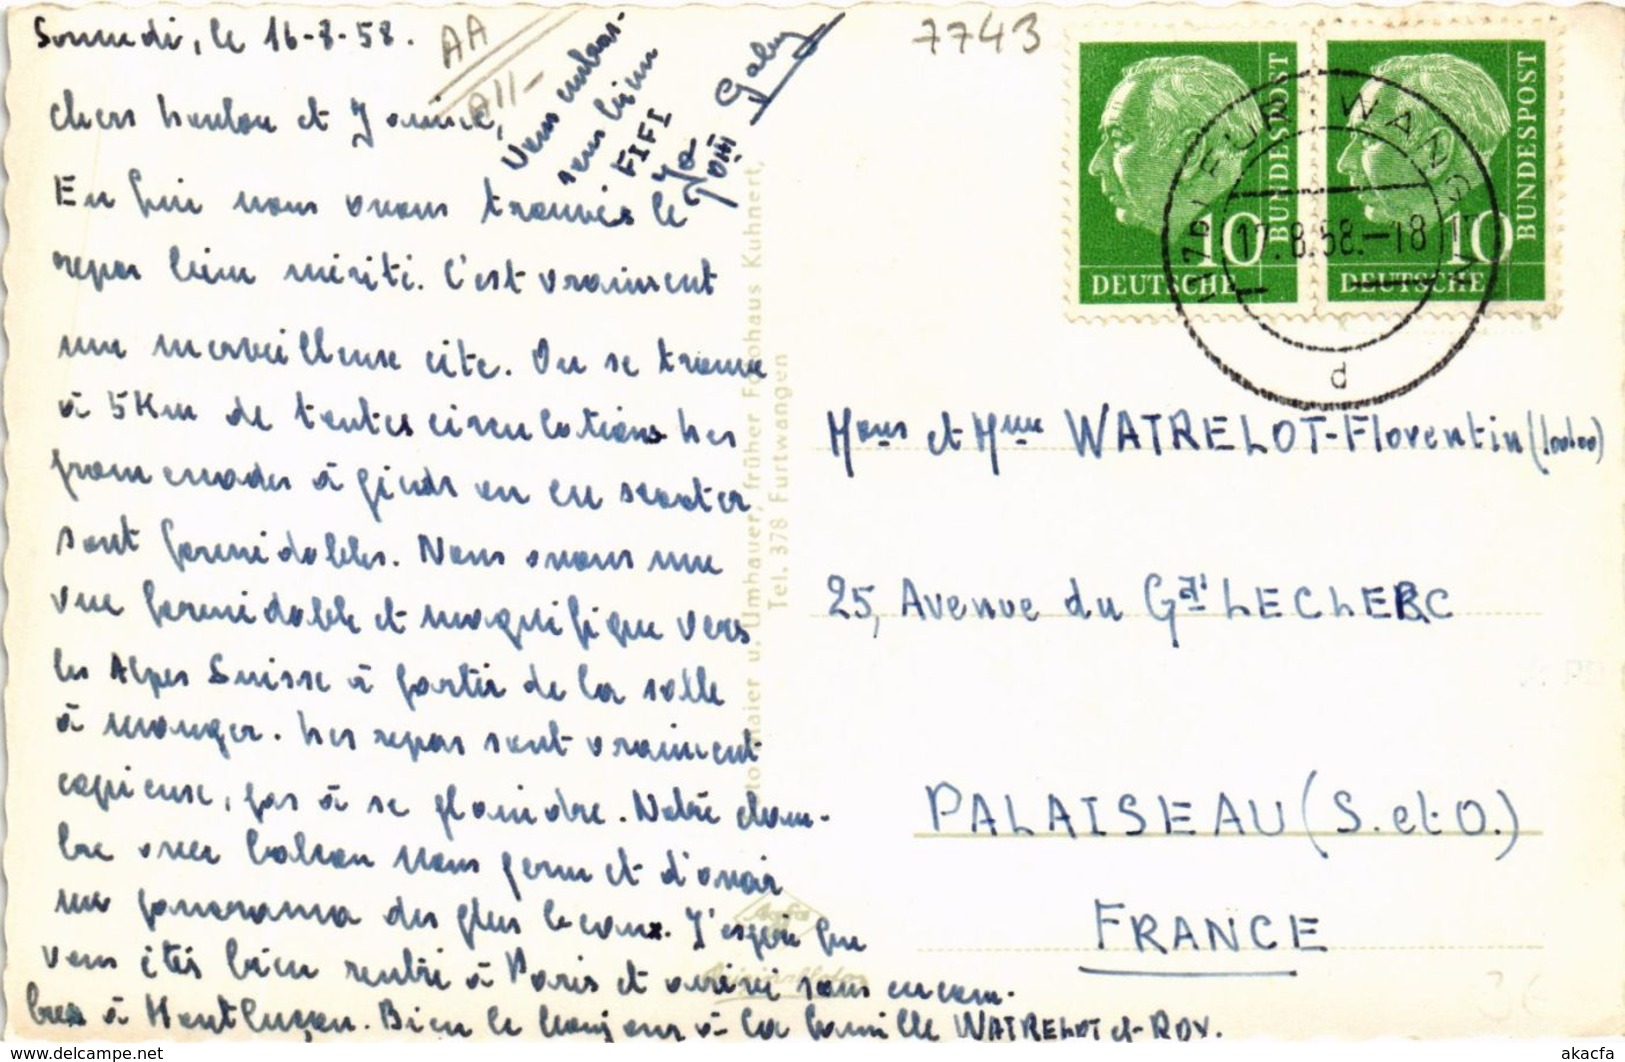 Samedi, le 16-8-58.
Chers Loulou et Janine,
En fin nous avons trouvés le
repas bien mérité. C'est vraiment
une merveilleuse cité. On se trouve
à 5 Km de toutes circulations. Les
promenades à pieds ou en scooter
sont formidables. Nous avons une
vue formidable et magnifique vers
les Alpes Suisse à partir de la salle
à manger. Les repas sont vraiment
copieuse, pas à se plaindre. Notre cham-
bre avec balcon nous permet d'avoir
un panorama des plus beaux. J'espère que
vous êtes bien rentré à Paris et arrivé sans encom-
bres à Montluçon. Bien le bonjour à la famille WATRELOT et ROY.
Vous embras-
sons bien
FIFI
Gaby
AA
7743
Mons et Mme WATRELOT-Florentin (loulou)
25, Avenue du Gal LECLERC
PALAISEAU (S. et O.)
FRANCE
10 BUNDESPOST
DEUTSCHE
10 BUNDESPOST
DEUTSCHE
FURTWANGEN
17.8.58.-18
d
u. Umhauer, früher Fotohaus Kuhnert,
Tel. 378 Furtwangen
Agfa
akacfa